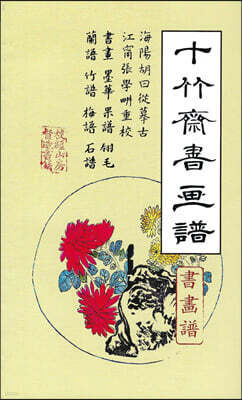 十竹齋書画譜
海陽胡曰從摹古
江甯張學畊重校
書畫 墨華 果譜 翎毛
蘭譜 竹譜 梅譜 石譜
書畫譜